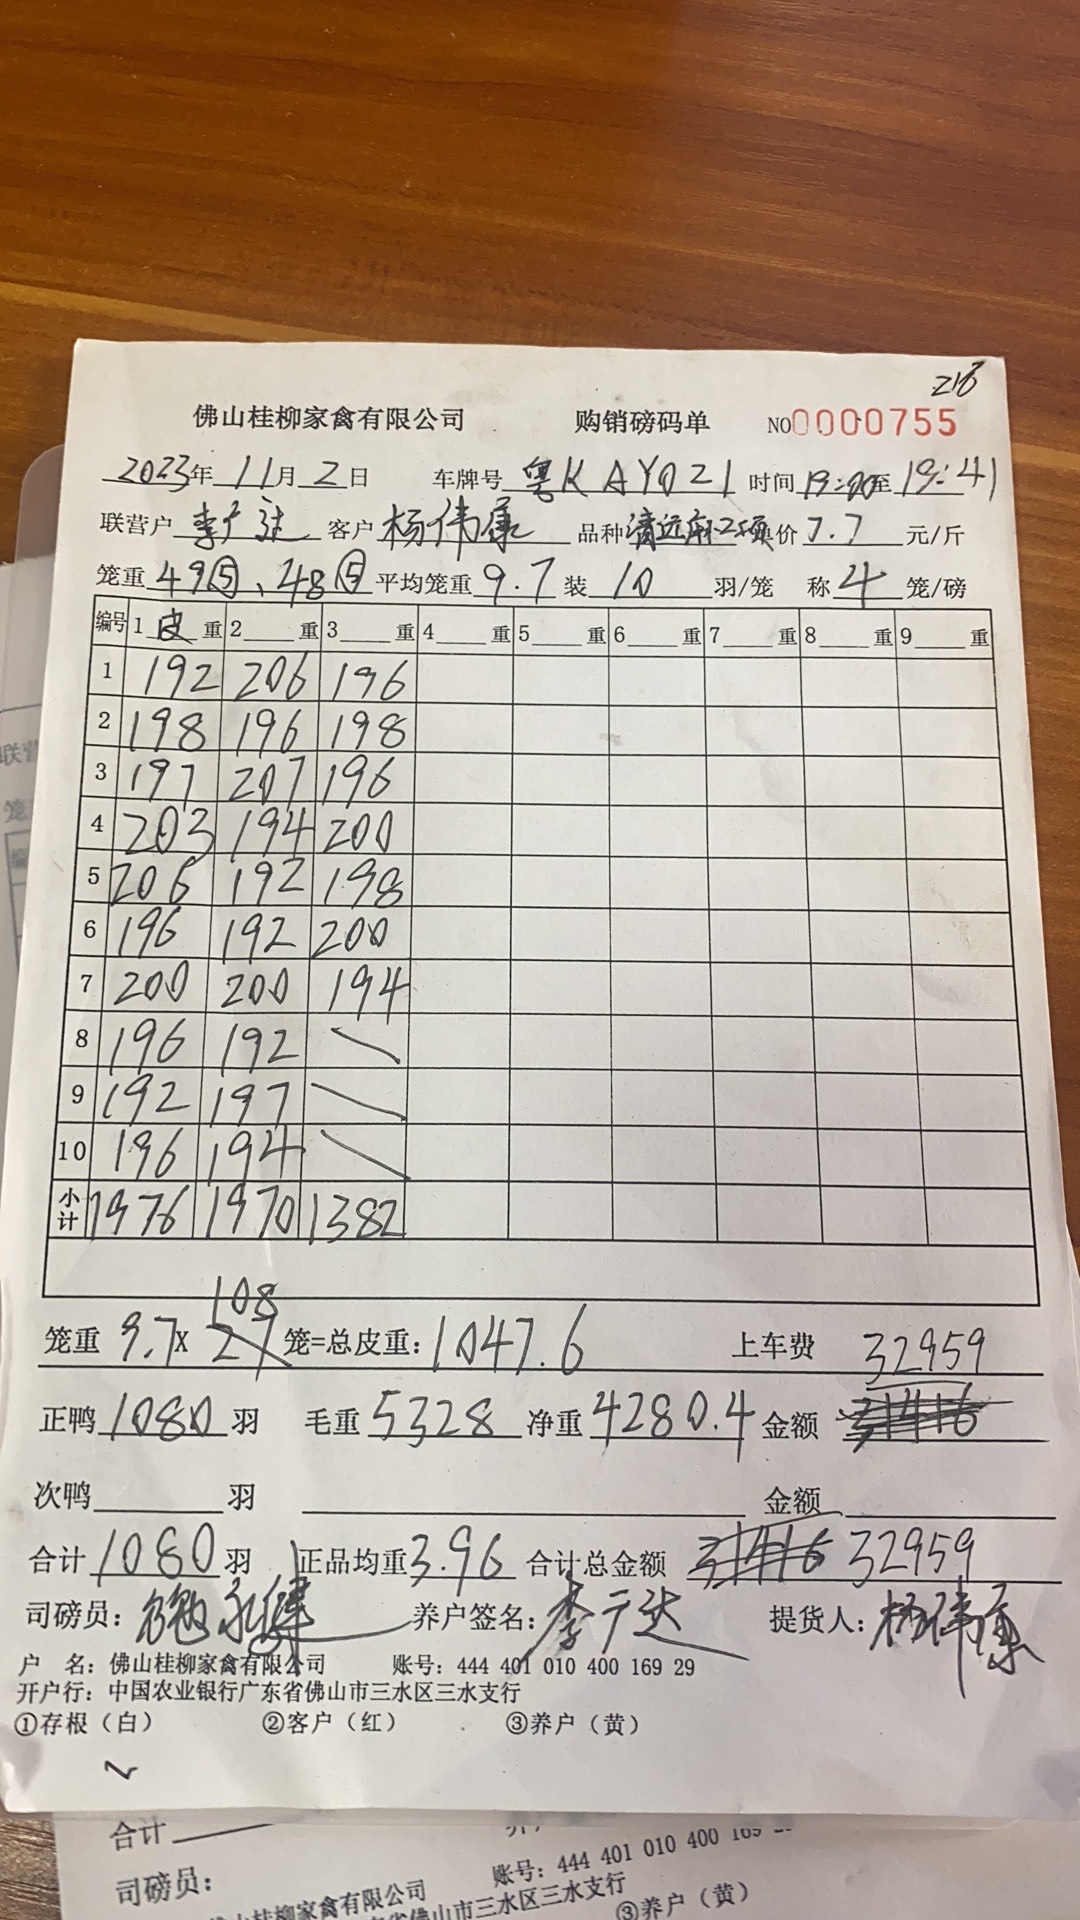 218
佛山桂柳家禽有限公司 购销磅码单 NO0000755
2023年11月2日 车牌号 粤KAY021 时间19:00至19:41
联营户 李广达 客户 杨伟康 品种 清远麻 单价 7.7 元/斤
笼重 49⑤、48⑤ 平均笼重 9.7 装 10 羽/笼 称 4 笼/磅
编号 1 皮 重 2 重 3 重 4 重 5 重 6 重 7 重 8 重 9 重
1 192 206 196
2 198 196 198
3 197 207 196
4 203 194 200
5 206 192 198
6 196 192 200
7 200 200 194
8 196 192
9 192 197
10 196 194
小计 1976 1970 1382
108
笼重 9.7× 27 笼=总皮重: 1047.6 上车费 32959
正鸭 1080 羽 毛重 5328 净重 4280.4 金额 31416
次鸭 羽 金额
合计 1080 羽 正品均重 3.96 合计总金额 31416 32959
司磅员: 养户签名: 李广达 提货人: 杨伟康
户 名: 佛山桂柳家禽有限公司 账号: 444 401 010 400 169 29
开户行: 中国农业银行广东省佛山市三水区三水支行
①存根(白) ②客户(红) ③养户(黄)
合计
司磅员: 账号: 444 401 010 400 169
佛山桂柳家禽有限公司
省佛山市三水区三水支行
③养户(黄)